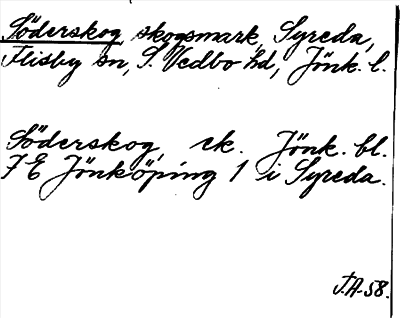 Söderskog skogsmark, Syreda,
Flisby sn, S. Vedbo hd, Jönk. l.
Söderskog, ek. Jönk. bl.
7 E Jönköping 1 i Syreda.
J.A-58.